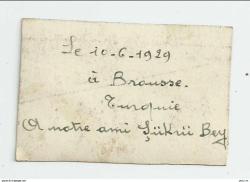 Le 10-6-1929
à Brousse.
Turquie
A notre ami Şükrü Bey